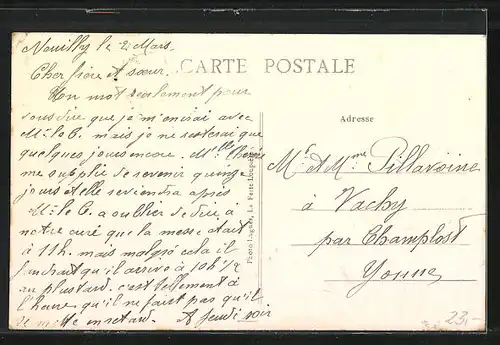 Neuilly le 2 Mars
Cher frère et sœur
CARTE POSTALE
Un mot seulement pour
vous dire que je m'en irai avec
M. le C. mais je ne resterai que
quelques jours encore. Melle
me supplie de revenir quinze
jours et elle reviendra après
M. le C. a oublier de dire à
notre curé que la messe était
à 11h. mais malgré cela il
faudrait qu'il arrive à 10h 1/2
au plus tard. c'est tellement à
l'heure qu'il ne faut pas qu'il
se mette en retard. A jeudi soir
Adresse
Mr et Mme Pillavoine
à Vachy
par Champlost
Yonne
23,-